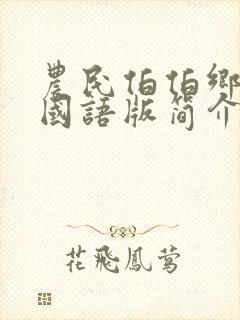 農民伯伯鄉
國語版简介
花飛鳳鶯